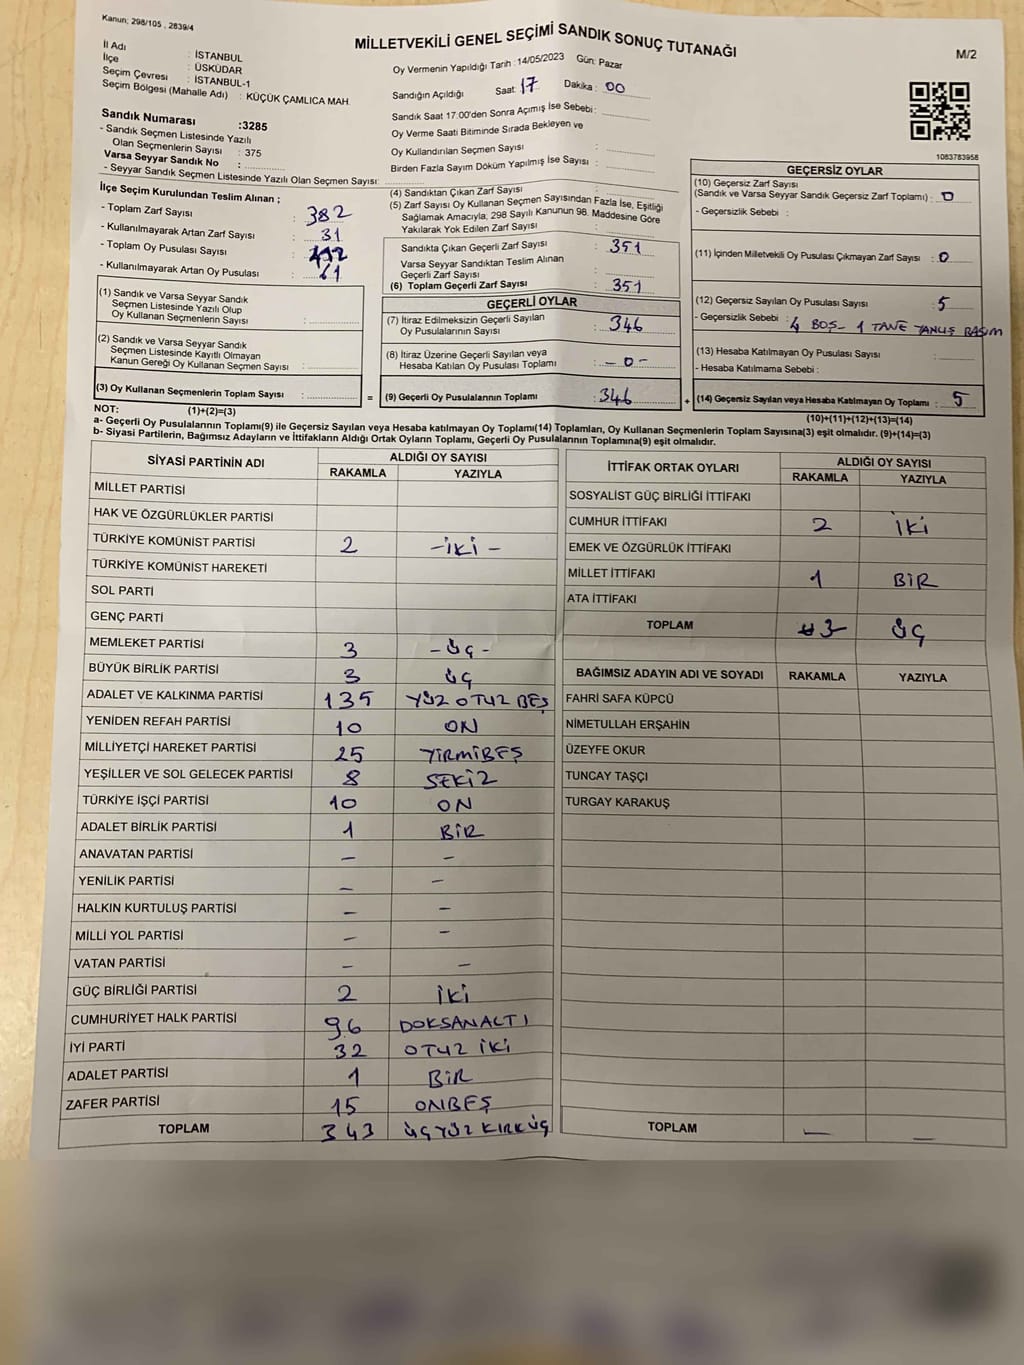 Kanun; 298/105 , 2839/4
MİLLETVEKİLİ GENEL SEÇİMİ SANDIK SONUÇ TUTANAĞI
M/2
İl Adı : İSTANBUL
İlçe : ÜSKÜDAR
Seçim Çevresi : İSTANBUL-1
Seçim Bölgesi (Mahalle Adı) : KÜÇÜK ÇAMLICA MAH.
Oy Vermenin Yapıldığı Tarih : 14/05/2023 Gün: Pazar
Sandığın Açıldığı Saat: 17 Dakika : 00
Sandık Saat 17:00'den Sonra Açımış İse Sebebi:
Oy Verme Saati Bitiminde Sırada Bekleyen ve
Oy Kullandırılan Seçmen Sayısı :
Birden Fazla Sayım Döküm Yapılmış İse Sayısı :
1083783958
Sandık Numarası :3285
- Sandık Seçmen Listesinde Yazılı
Olan Seçmenlerin Sayısı : 375
Varsa Seyyar Sandık No :
- Seyyar Sandık Seçmen Listesinde Yazılı Olan Seçmen Sayısı:
İlçe Seçim Kurulundan Teslim Alınan ;
- Toplam Zarf Sayısı : 382
- Kullanılmayarak Artan Zarf Sayısı : 31
- Toplam Oy Pusulası Sayısı :
- Kullanılmayarak Artan Oy Pusulası : 61
(1) Sandık ve Varsa Seyyar Sandık
Seçmen Listesinde Yazılı Olup
Oy Kullanan Seçmenlerin Sayısı :
(2) Sandık ve Varsa Seyyar Sandık
Seçmen Listesinde Kayıtlı Olmayan
Kanun Gereği Oy Kullanan Seçmen Sayısı :
(3) Oy Kullanan Seçmenlerin Toplam Sayısı : =
(1)+(2)=(3)
(4) Sandıktan Çıkan Zarf Sayısı :
(5) Zarf Sayısı Oy Kullanan Seçmen Sayısından Fazla İse, Eşitliği
Sağlamak Amacıyla, 298 Sayılı Kanunun 98. Maddesine Göre
Yakılarak Yok Edilen Zarf Sayısı :
Sandıkta Çıkan Geçerli Zarf Sayısı : 351
Varsa Seyyar Sandıktan Teslim Alınan
Geçerli Zarf Sayısı :
(6) Toplam Geçerli Zarf Sayısı : 351
GEÇERLİ OYLAR
(7) İtiraz Edilmeksizin Geçerli Sayılan
Oy Pusulalarının Sayısı : 346
(8) İtiraz Üzerine Geçerli Sayılan veya
Hesaba Katılan Oy Pusulası Toplamı : -0-
(9) Geçerli Oy Pusulalarının Toplamı : 346 +
GEÇERSİZ OYLAR
(10) Geçersiz Zarf Sayısı
(Sandık ve Varsa Seyyar Sandık Geçersiz Zarf Toplamı) : 0
- Geçersizlik Sebebi :
(11) İçinden Milletvekili Oy Pusulası Çıkmayan Zarf Sayısı : 0
(12) Geçersiz Sayılan Oy Pusulası Sayısı : 5
- Geçersizlik Sebebi : 4 BOŞ - 1 TANE YANLIŞ BASIM
(13) Hesaba Katılmayan Oy Pusulası Sayısı :
- Hesaba Katılmama Sebebi :
(14) Geçersiz Sayılan veya Hesaba Katılmayan Oy Toplamı : 5
(10)+(11)+(12)+(13)=(14)
NOT:
a- Geçerli Oy Pusulalarının Toplamı(9) ile Geçersiz Sayılan veya Hesaba katılmayan Oy Toplamı(14) Toplamları, Oy Kullanan Seçmenlerin Toplam Sayısına(3) eşit olmalıdır. (9)+(14)=(3)
b- Siyasi Partilerin, Bağımsız Adayların ve İttifakların Aldığı Ortak Oyların Toplamı, Geçerli Oy Pusulalarının Toplamına(9) eşit olmalıdır.
SİYASİ PARTİNİN ADI ALDIĞI OY SAYISI
RAKAMLA YAZIYLA
MİLLET PARTİSİ
HAK VE ÖZGÜRLÜKLER PARTİSİ
TÜRKİYE KOMÜNİST PARTİSİ 2 -İKİ-
TÜRKİYE KOMÜNİST HAREKETİ
SOL PARTİ
GENÇ PARTİ
MEMLEKET PARTİSİ 3 -ÜÇ-
BÜYÜK BİRLİK PARTİSİ 3 ÜÇ
ADALET VE KALKINMA PARTİSİ 135 YÜZ OTUZ BEŞ
YENİDEN REFAH PARTİSİ 10 ON
MİLLİYETÇİ HAREKET PARTİSİ 25 YİRMİBEŞ
YEŞİLLER VE SOL GELECEK PARTİSİ 8 SEKİZ
TÜRKİYE İŞÇİ PARTİSİ 10 ON
ADALET BİRLİK PARTİSİ 1 BİR
ANAVATAN PARTİSİ - -
YENİLİK PARTİSİ - -
HALKIN KURTULUŞ PARTİSİ - -
MİLLİ YOL PARTİSİ - -
VATAN PARTİSİ - -
GÜÇ BİRLİĞİ PARTİSİ 2 İKİ
CUMHURİYET HALK PARTİSİ 96 DOKSANALTI
İYİ PARTİ 32 OTUZ İKİ
ADALET PARTİSİ 1 BİR
ZAFER PARTİSİ 15 ONBEŞ
TOPLAM 343 ÜÇYÜZ KIRKÜÇ
İTTİFAK ORTAK OYLARI ALDIĞI OY SAYISI
RAKAMLA YAZIYLA
SOSYALİST GÜÇ BİRLİĞİ İTTİFAKI
CUMHUR İTTİFAKI 2 İKİ
EMEK VE ÖZGÜRLÜK İTTİFAKI
MİLLET İTTİFAKI 1 BİR
ATA İTTİFAKI
TOPLAM 3 ÜÇ
BAĞIMSIZ ADAYIN ADI VE SOYADI RAKAMLA YAZIYLA
FAHRİ SAFA KÜPCÜ
NİMETULLAH ERŞAHİN
ÜZEYFE OKUR
TUNCAY TAŞÇI
TURGAY KARAKUŞ
TOPLAM - -